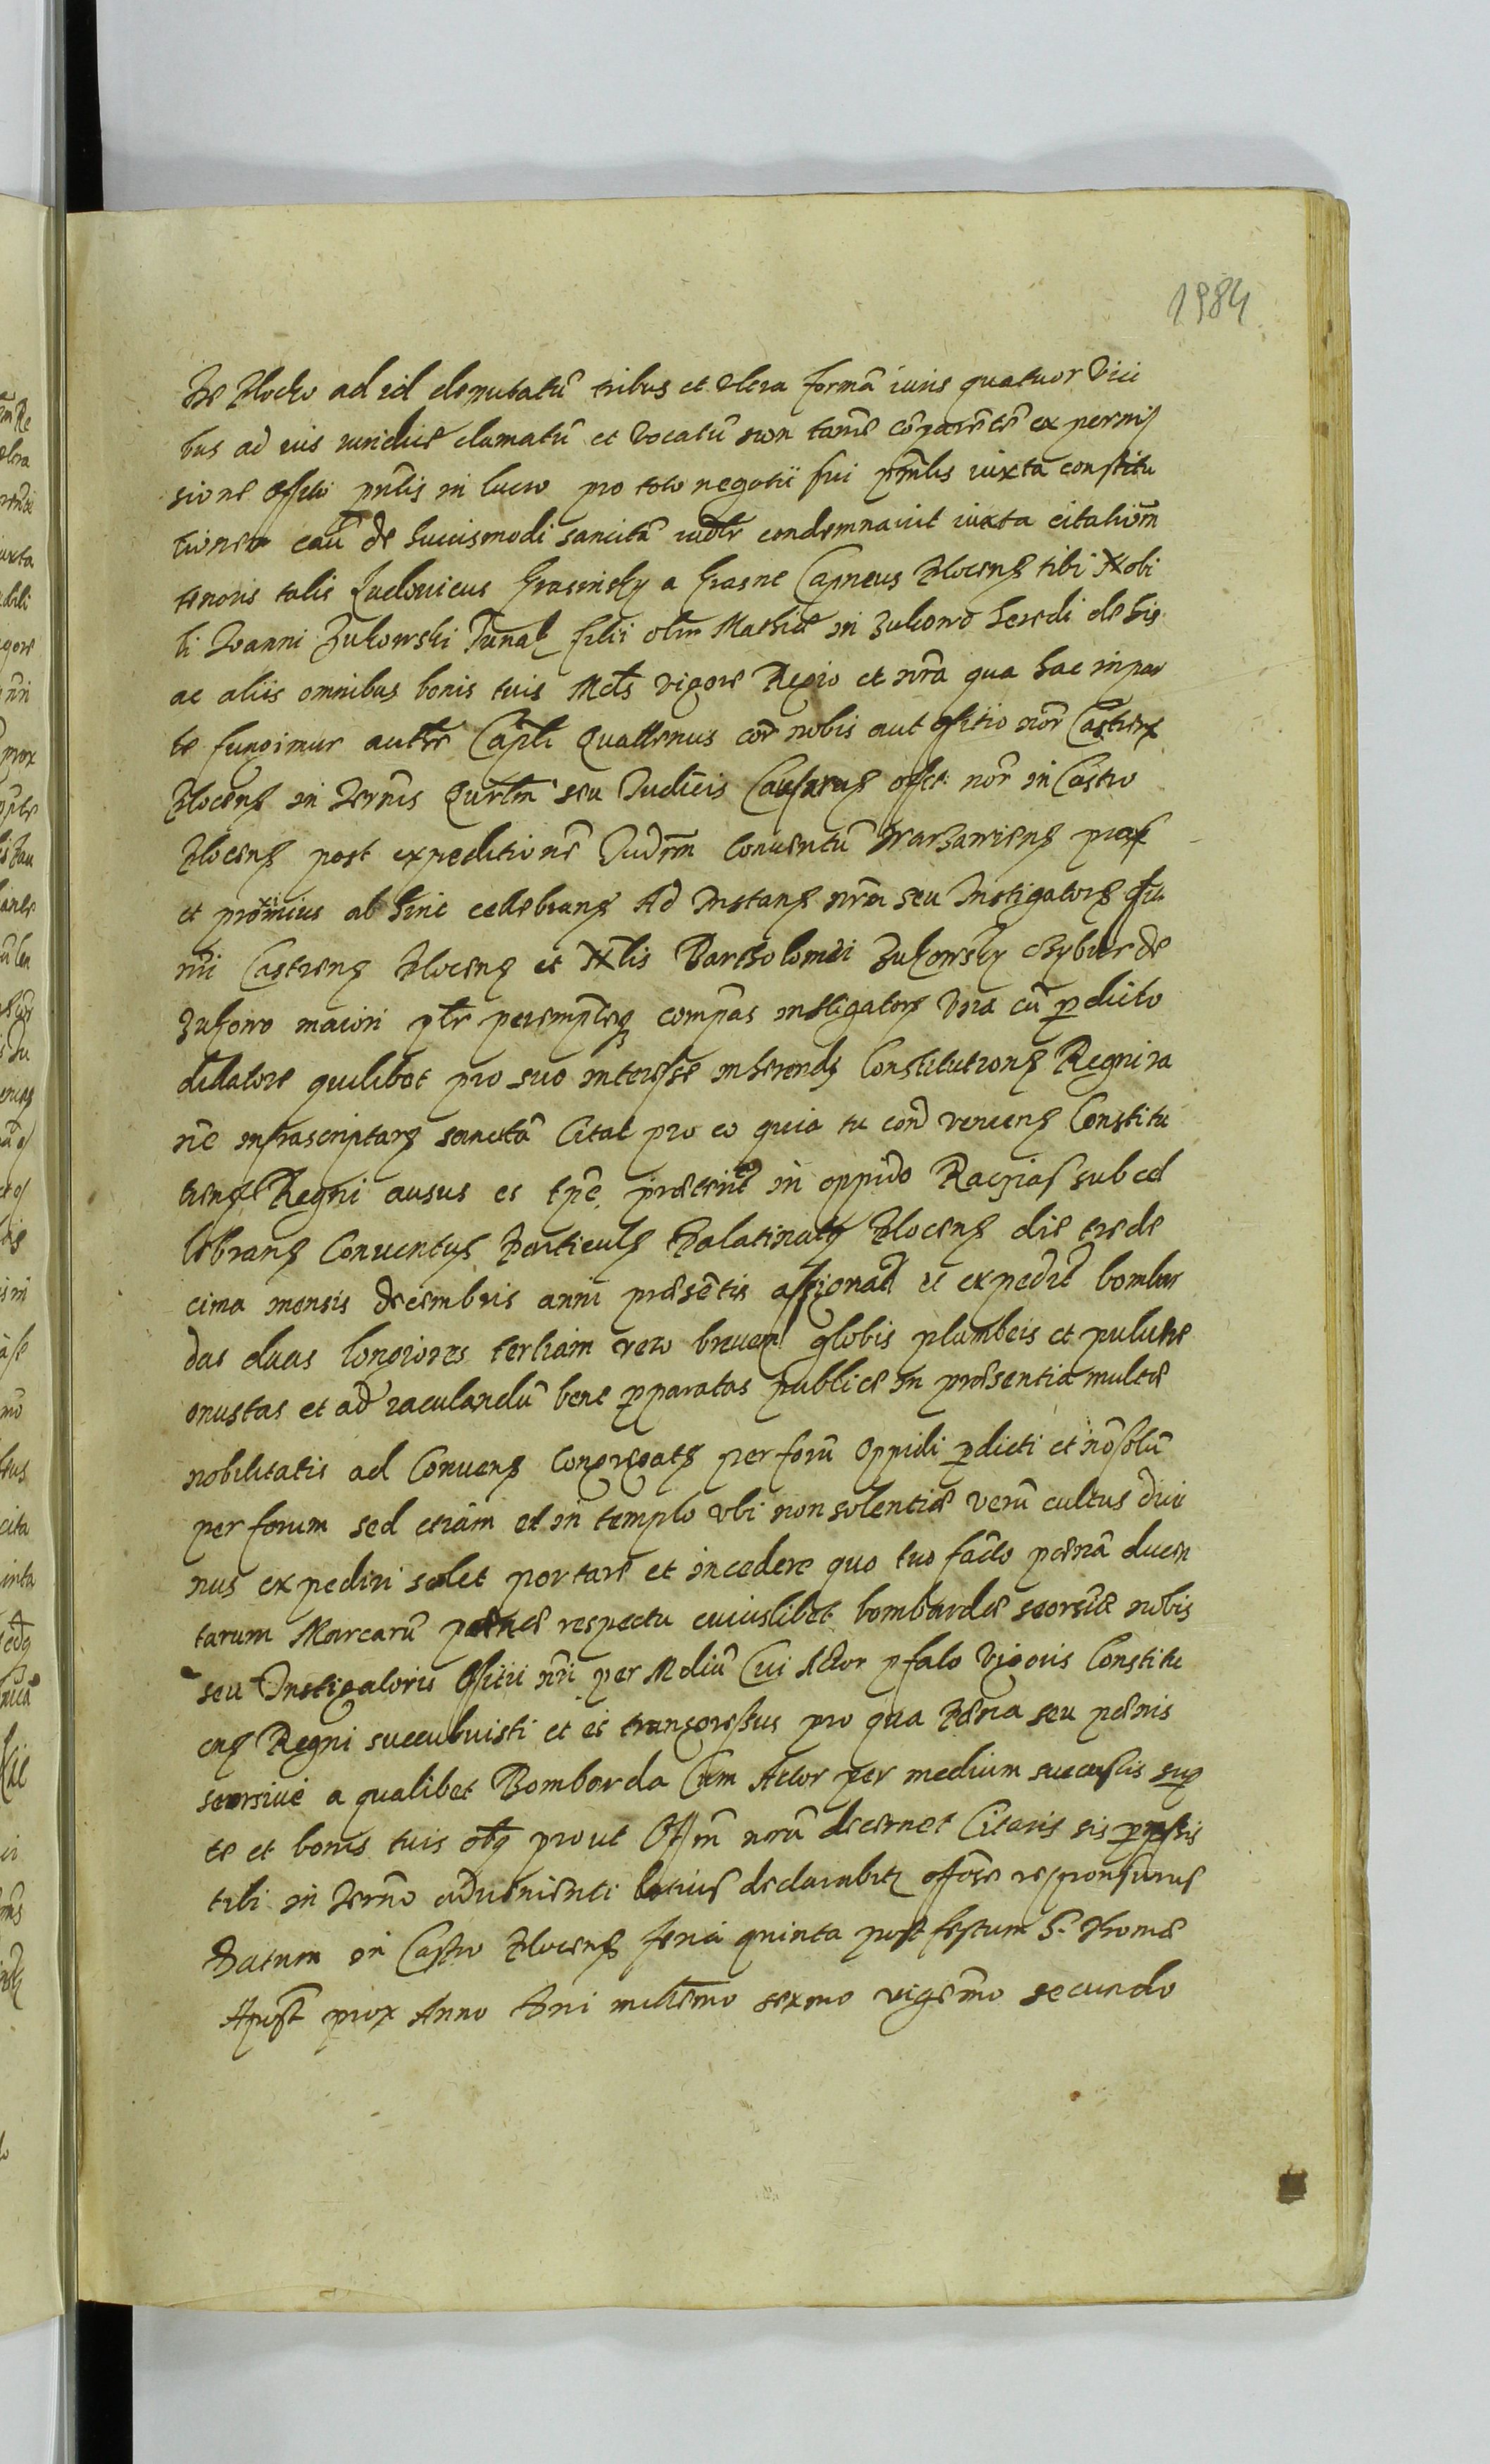 1984
de Plocko ad id deputatū tribus et vltra formā iuris quatuor vici
bus ad ius iuridicè clamatū et vocatū non tamē cōparētē ex permis
sione officio pn̄tis in lucro pro toto negotii sui pm̄lis iuxta constitu
tionem eaū de huiusmodi sancitā condemnauit iuxta citatiōm
tenoris talis Ludouicus Krasinsky a Krasne Capneus Plocens tibi Nobi
li Ioanni Zukowski filii olim Mathiæ in Zukowo heredi de his
ac aliis omnibus bonis tuis Mdts vigore Regio et nr̄a qua hac in par
te fungimur autte Capli Quattenus cor nobis aut officio nōr Castren
Plocens in Termis Qurlm seu Iudiciis Causarum offi nōr in Castro
Plocens post expeditionē Iudrm conuentū Warzawiens prox
et proximius ab hinc celebrans Ad Instans nr̄m seu Instigatoris
nr̄i Castrens Plocens et Nlis Bartholomæi Zukowsky de
Zukowo maiori ptr peremptieq compas instigatoris vna cū pdicto
dilatore quilibet pro suo interesse inherends Constitutions Regni ra
nē infrascriptars sancita Citat pro eo quia tu con veniens Constitu
tiens Regni ausus es tpē præterit in oppido Raciąs sub cel
lebrans Conuentus Particuls Palatinatq Plocens die trede
cima mensis decembris anni præsētis assignat et expedit bombar
das duas longiores tertiam vero breuem globis plumbeis et puluere
onustas et ad iaculandū bene pparatas publicè in præsentia multæ
nobilitatis ad Conuens Congregats per forū Oppidi pdicti et nō solū
per forum sed etiam et in templo vbi non solentiæ verū cultus diui
nus expediri solet portare et incedere quo tuo facto pœnā ducen
tarum Marcarū pœnæ respectu cuiuslibet bombardæ seorsiuæ nobis
seu Instigatoris Officii nr̄i per Mediū Cui Actor pfato vigoris Constitu
ens Regni succubuisti et es transgressus pro qua Pœna seu pœnis
seorsiuè a qualibet Bombarda Cum Actor per medium succussis sup
te et bonis tuis prout Offm nrū decernet Citaris sis
tibi in Termo adueniēnti latius declarabitz responsurus
Datum in Castro Plocens feria quinta post festum S. Thomæ
Apost prox Anno Dni millemo sexmo vigēmo secundo